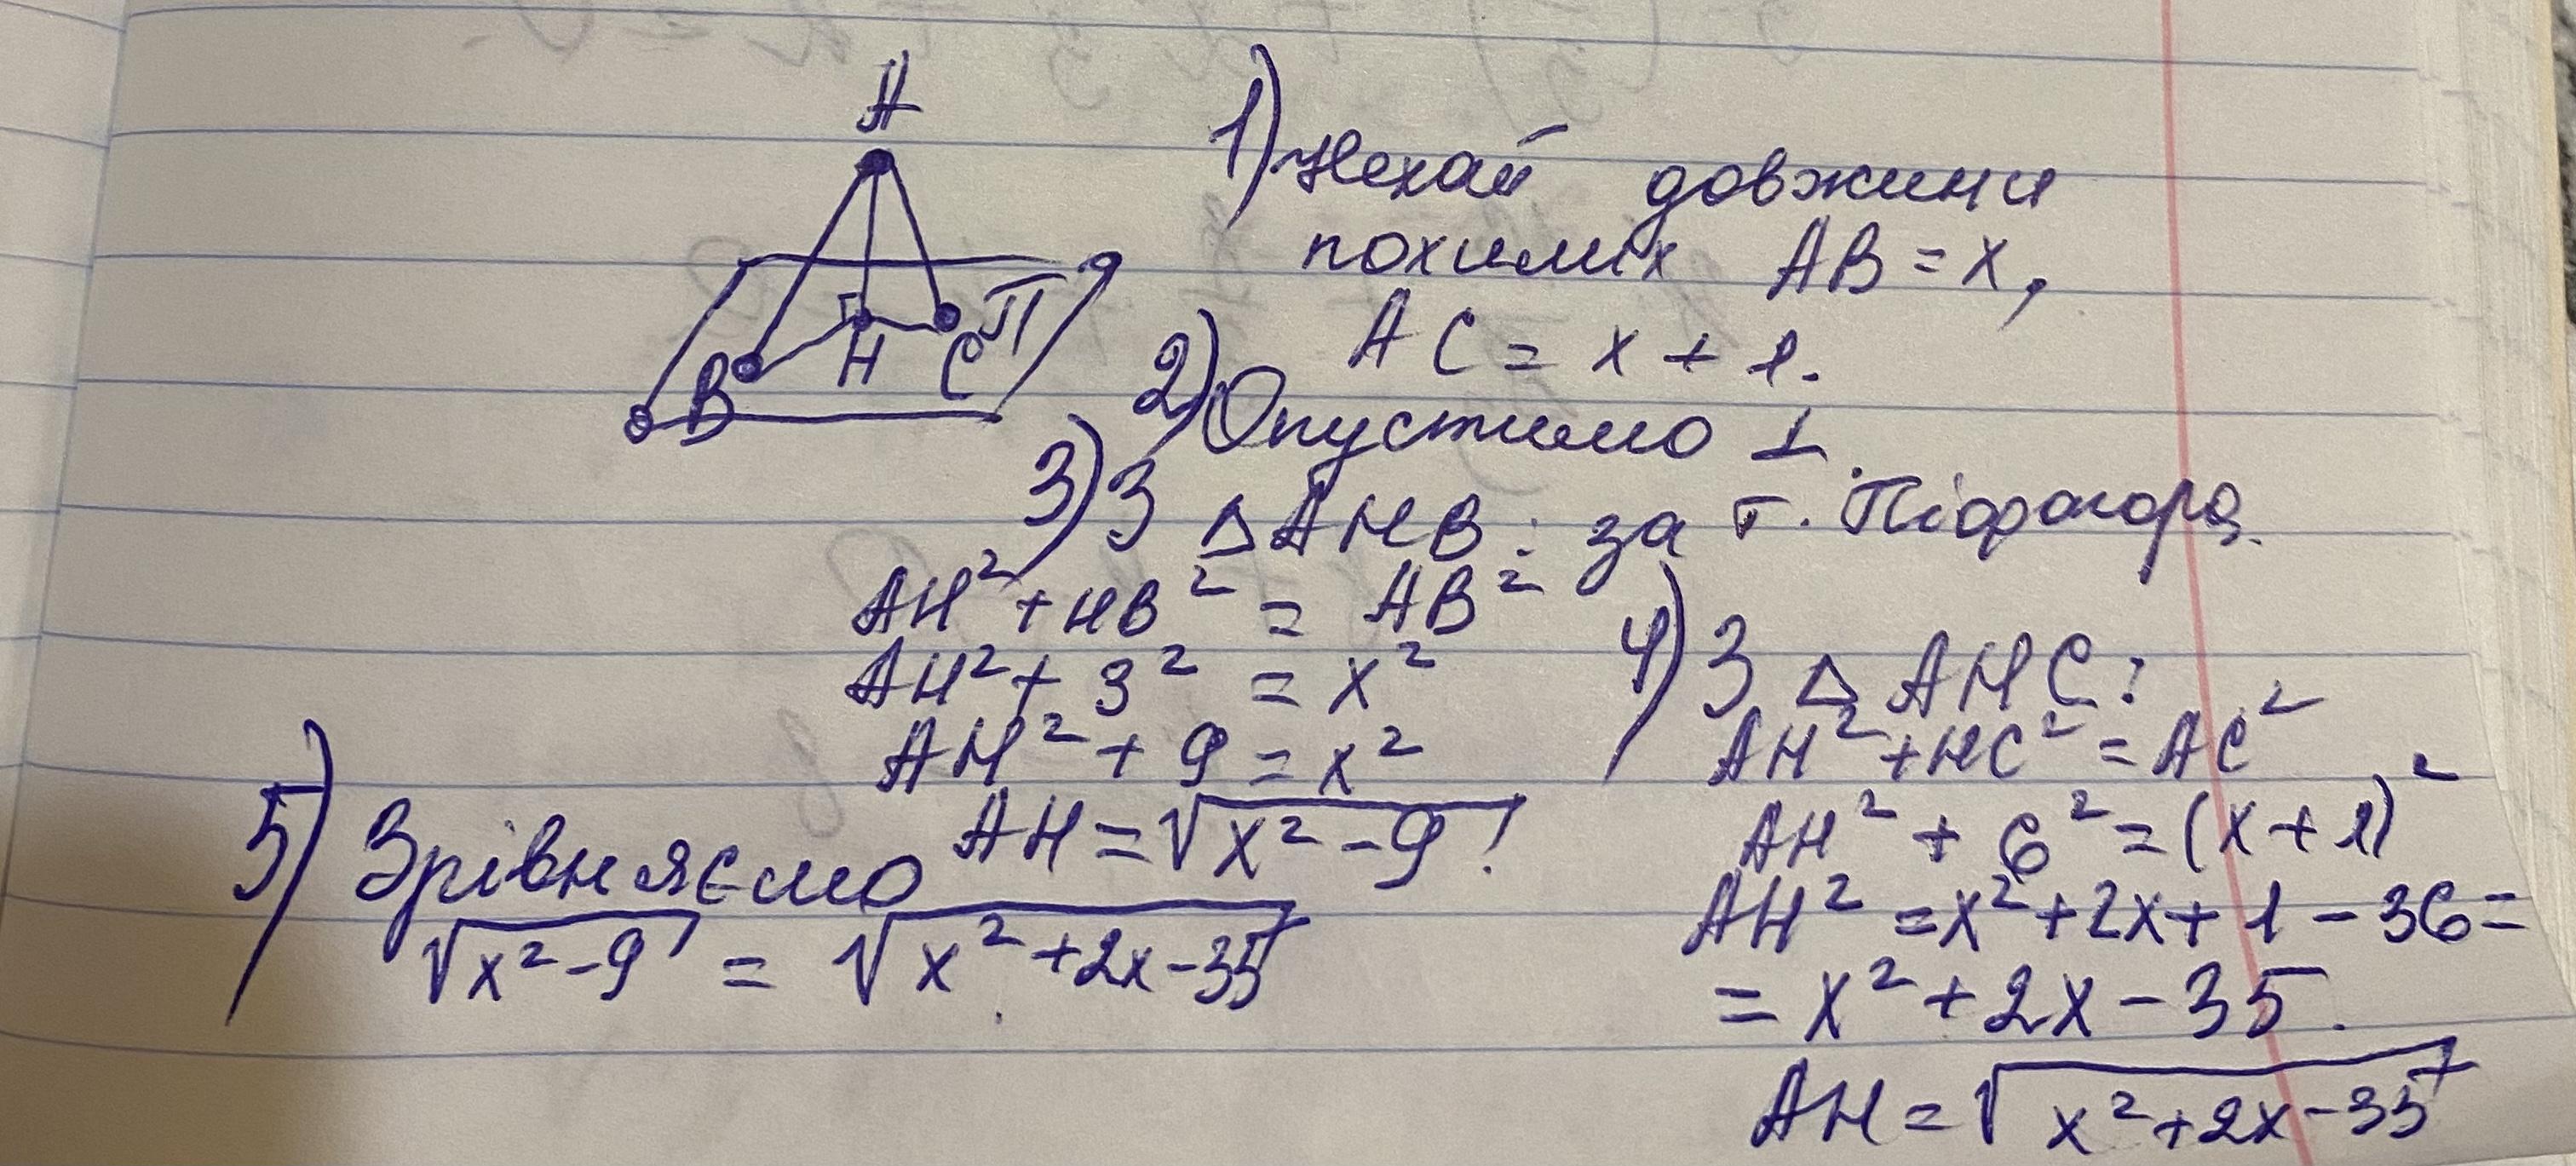 A
B
H
C
П
1) Нехай довжини
похилих AB = x,
AC = x + 1.
2) Опустимо ⊥.
3) З △AHB: за т. Піфагора
AH² + HB² = AB²
AH² + 3² = x²
AH² + 9 = x²
AH = √(x² - 9) !
4) З △AHC:
AH² + HC² = AC²
AH² + 6² = (x + 1)²
AH² = x² + 2x + 1 - 36 =
= x² + 2x - 35.
AH = √(x² + 2x - 35)
5) Зрівняємо
√(x² - 9) = √(x² + 2x - 35)